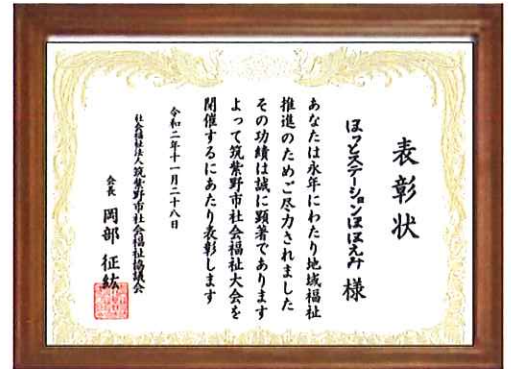 表彰状
ほっとステーションほほえみ 様
あなたは永年にわたり地域福祉
推進のためご尽力されました
その功績は誠に顕著であります
よって筑紫野市社会福祉大会を
開催するにあたり表彰します
令和二年十一月二十八日
社会福祉法人筑紫野市社会福祉協議会
会長 岡部 征紘